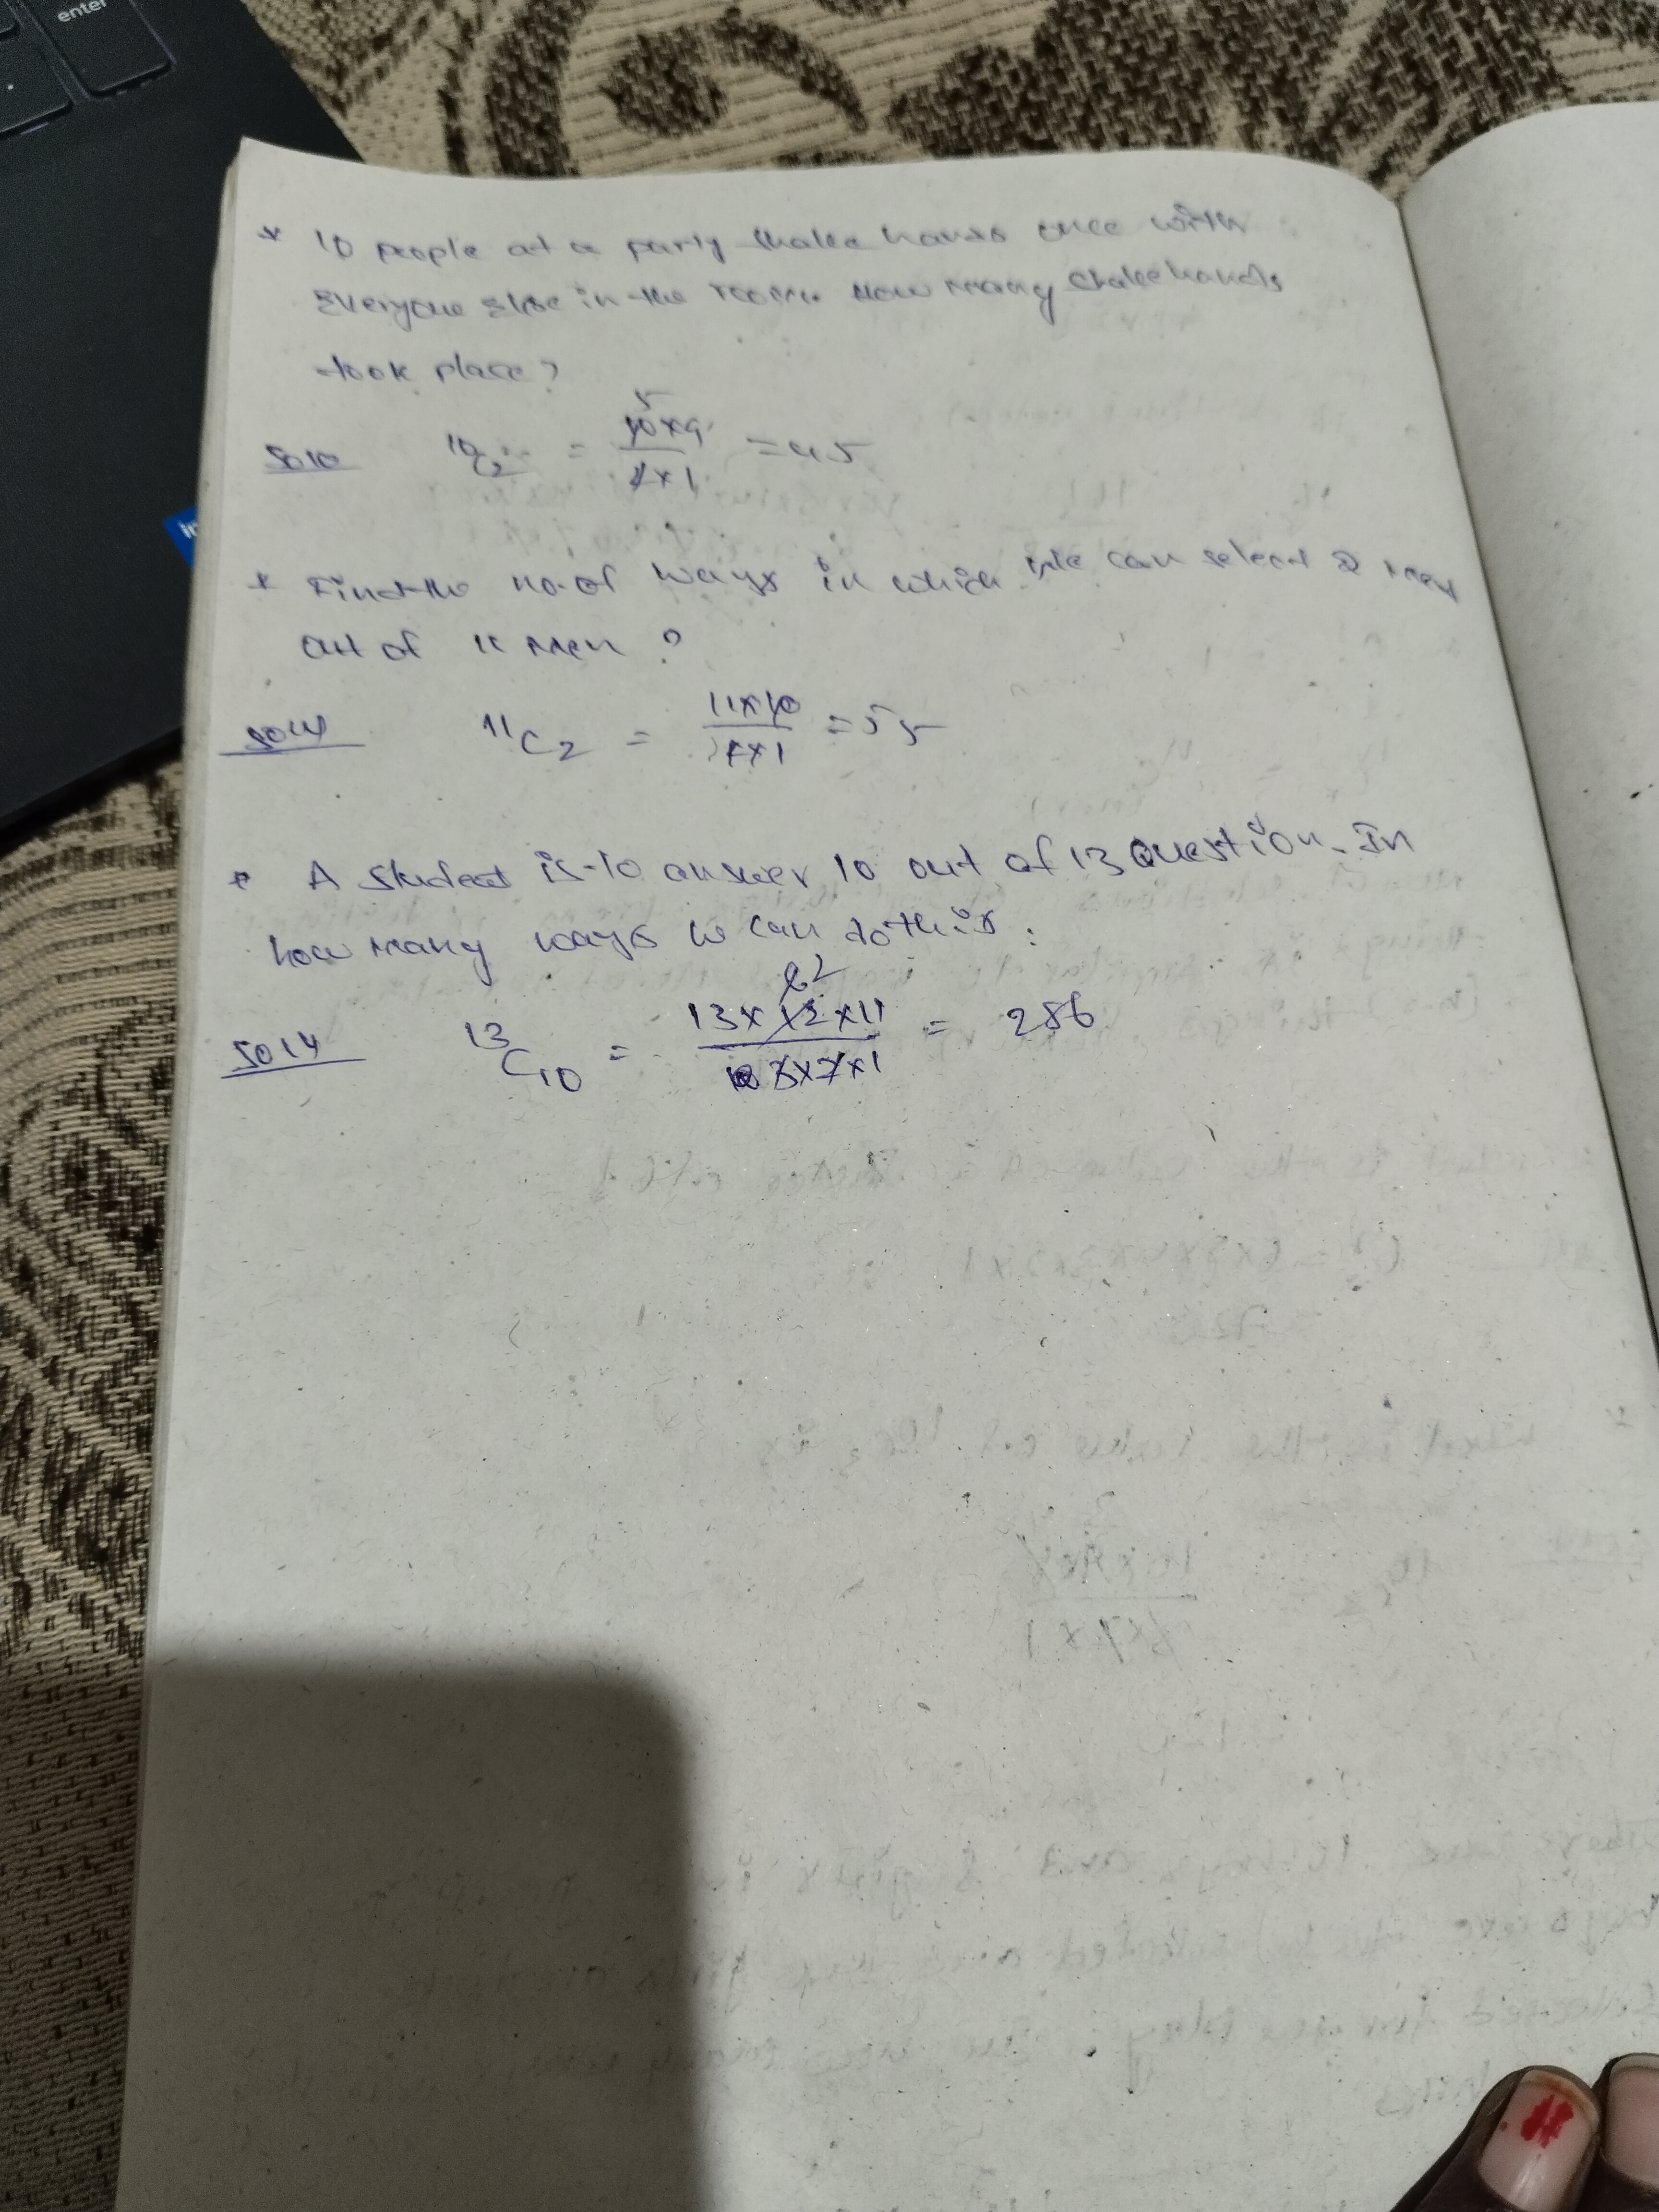 enter
* 10 people at a party shake hands once with
Everyone else in the room. How many shakehands
took place?
Soln 10C2 = 10x9 / 2x1 = 45
5
* Find the no. of ways in which we can select 2 men
out of 11 men ?
Soln 11C2 = 11x10 / 2x1 = 55
* A student is to answer 10 out of 13 Question. In
how many ways w can do this :
6 2
Soln 13C10 = 13x12x11 / 3x2x1 = 286